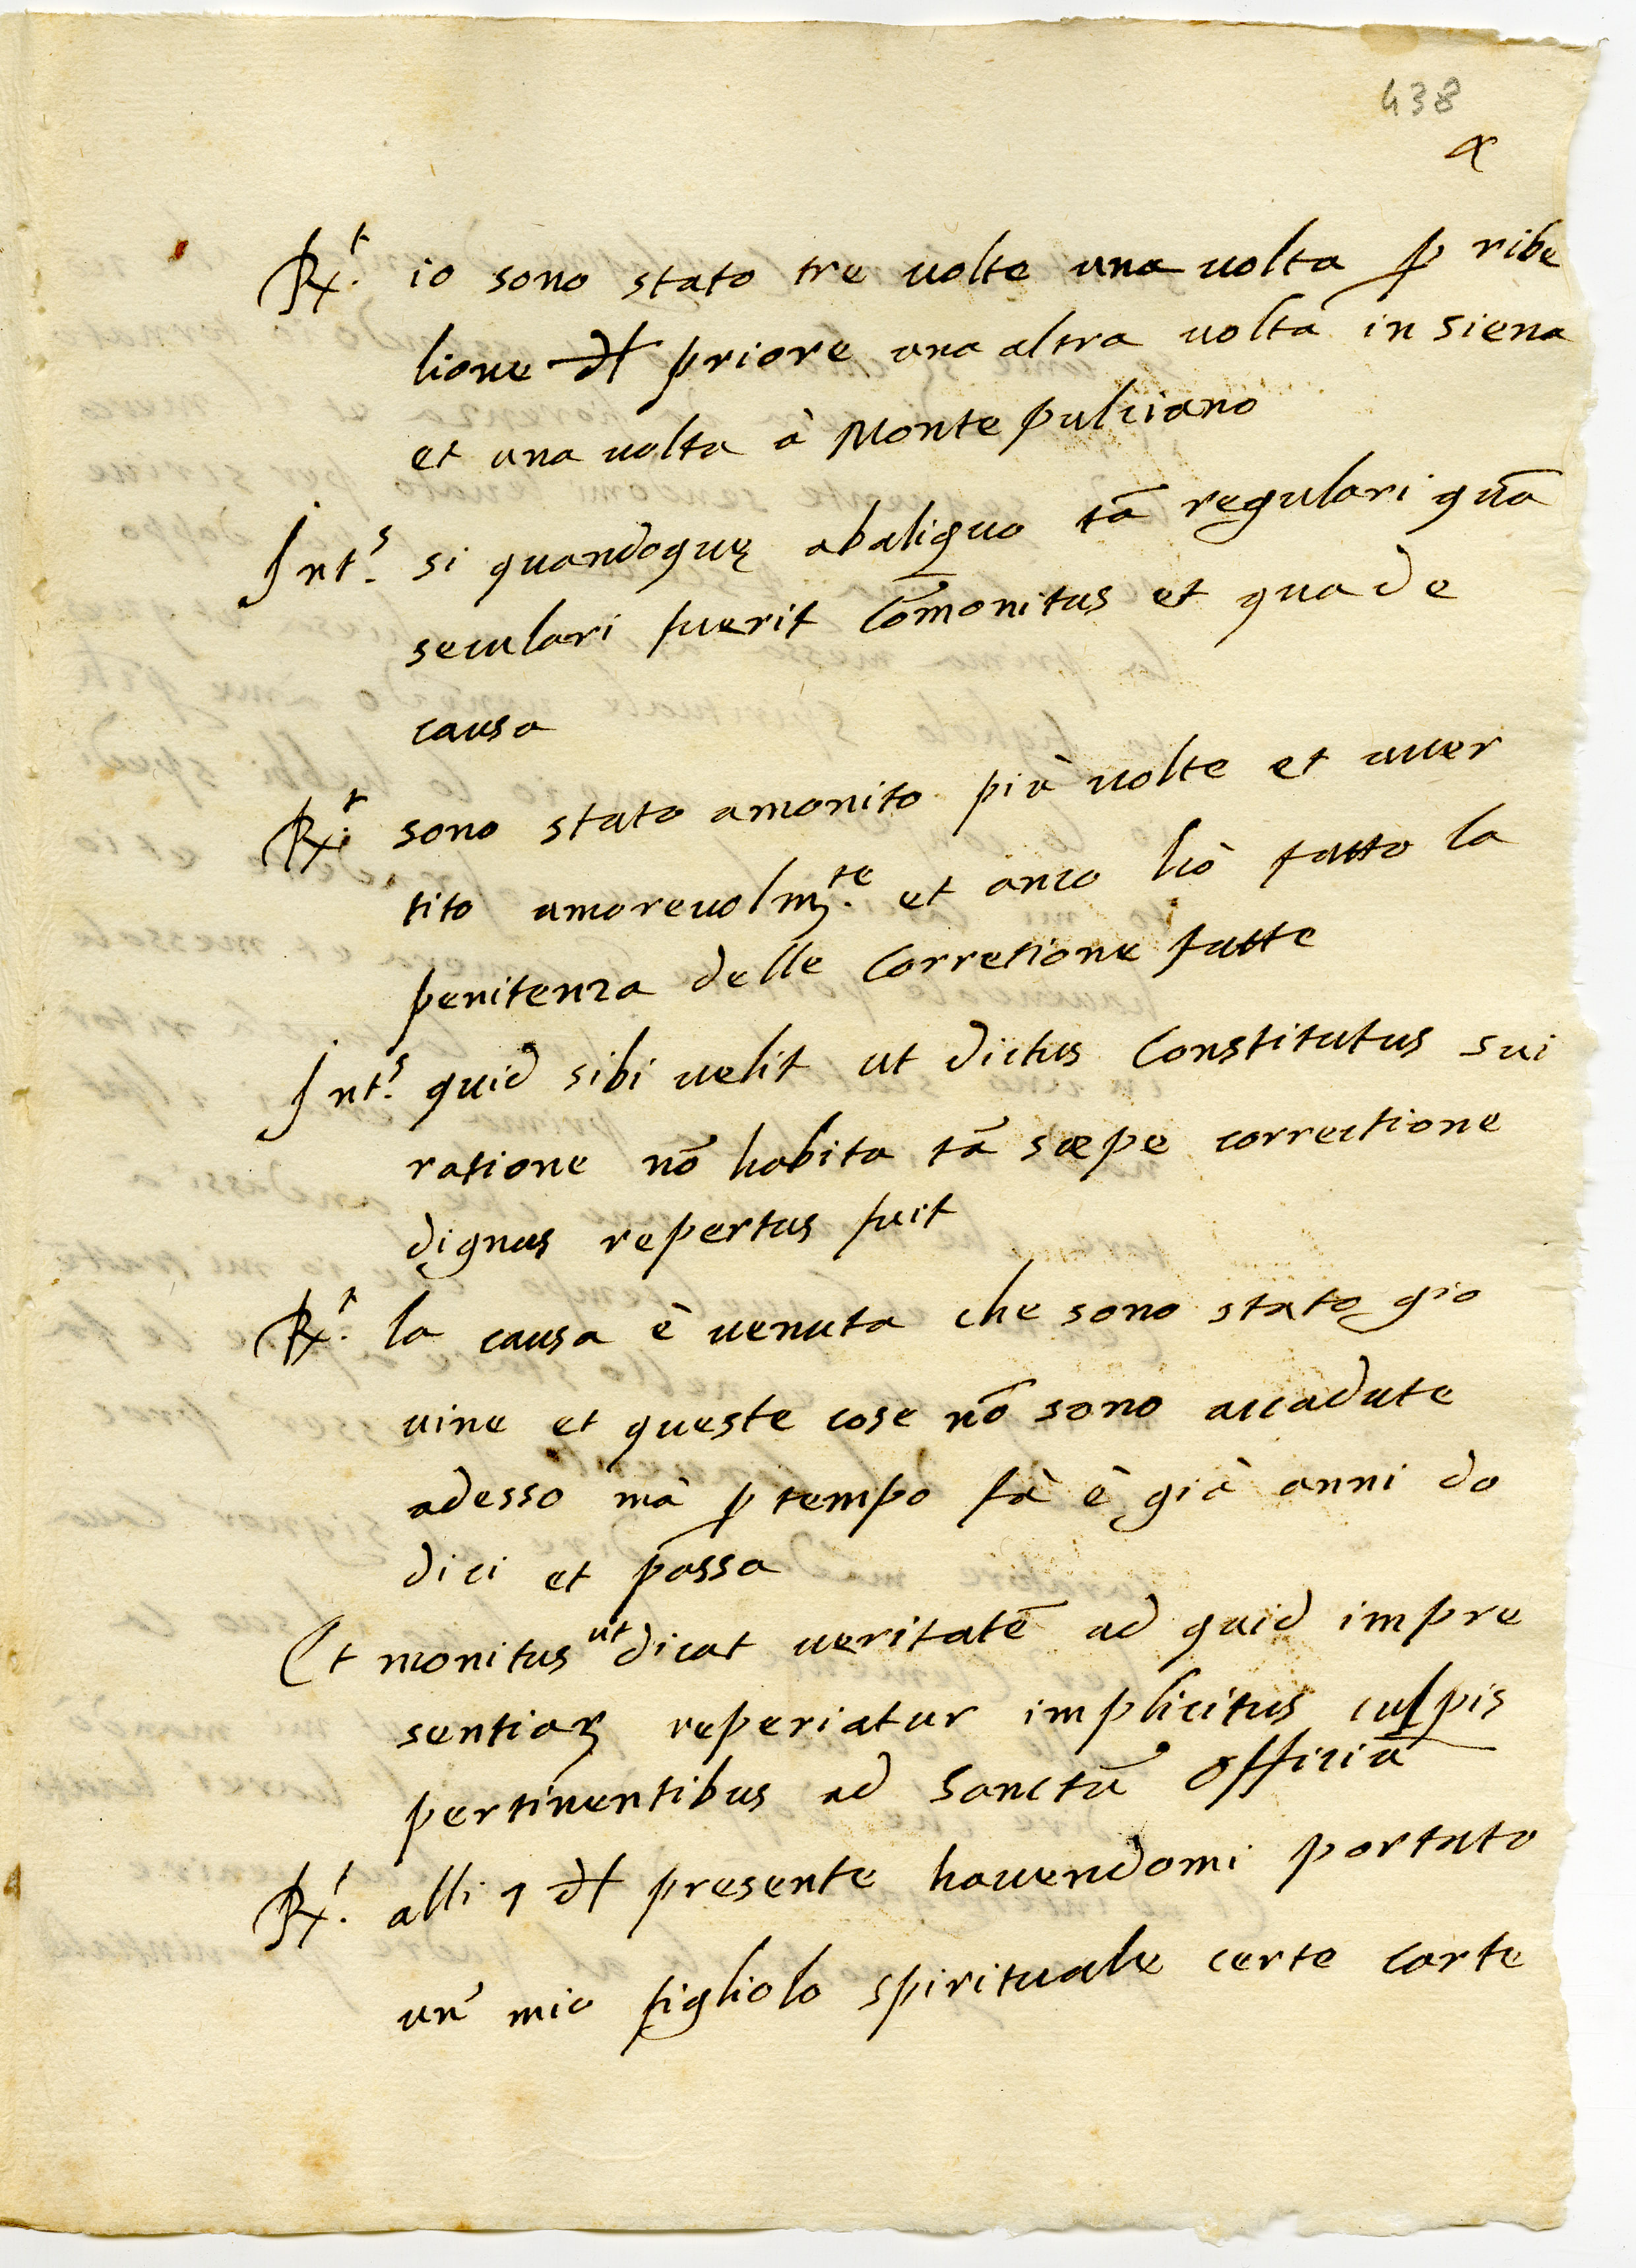 438
4
R.t io sono stato tre uolte una uolta ꝑ ribe
lione dl priore una altra uolta in siena
et una uolta à Monte pulciano
Int.s si quandoque ab aliquo tā regulari quā
seculari fuerit Cōmonitus et qua de
causa
R.t sono stato amonito più uolte et auer
tito amoreuolm.te et anco hò fatto la
penitenza delle Corretione fatte
Int.s quid sibi uelit ut dictus Constitutus sui
ratione nō habita tā sæpe correctione
dignus repertus fuit
R.t la causa è uenuta che sono stato gio
uine et queste cose nō sono accadute
adesso mà ꝑ tempo fà è già anni do
dici et passa
Et monitus ut dicat ueritatē ad quid impre
sentiaꝝ reperiatur implicitus culpis
pertinentibus ad Sanctū Officiū
R.t alli 1 dl presente hauendomi portato
un' mio figliolo spirituale certe carte